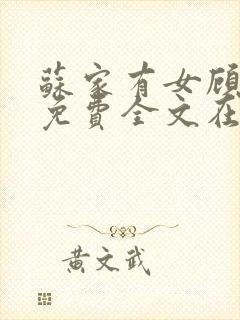 蘇家有女
免費全文在
黃文武